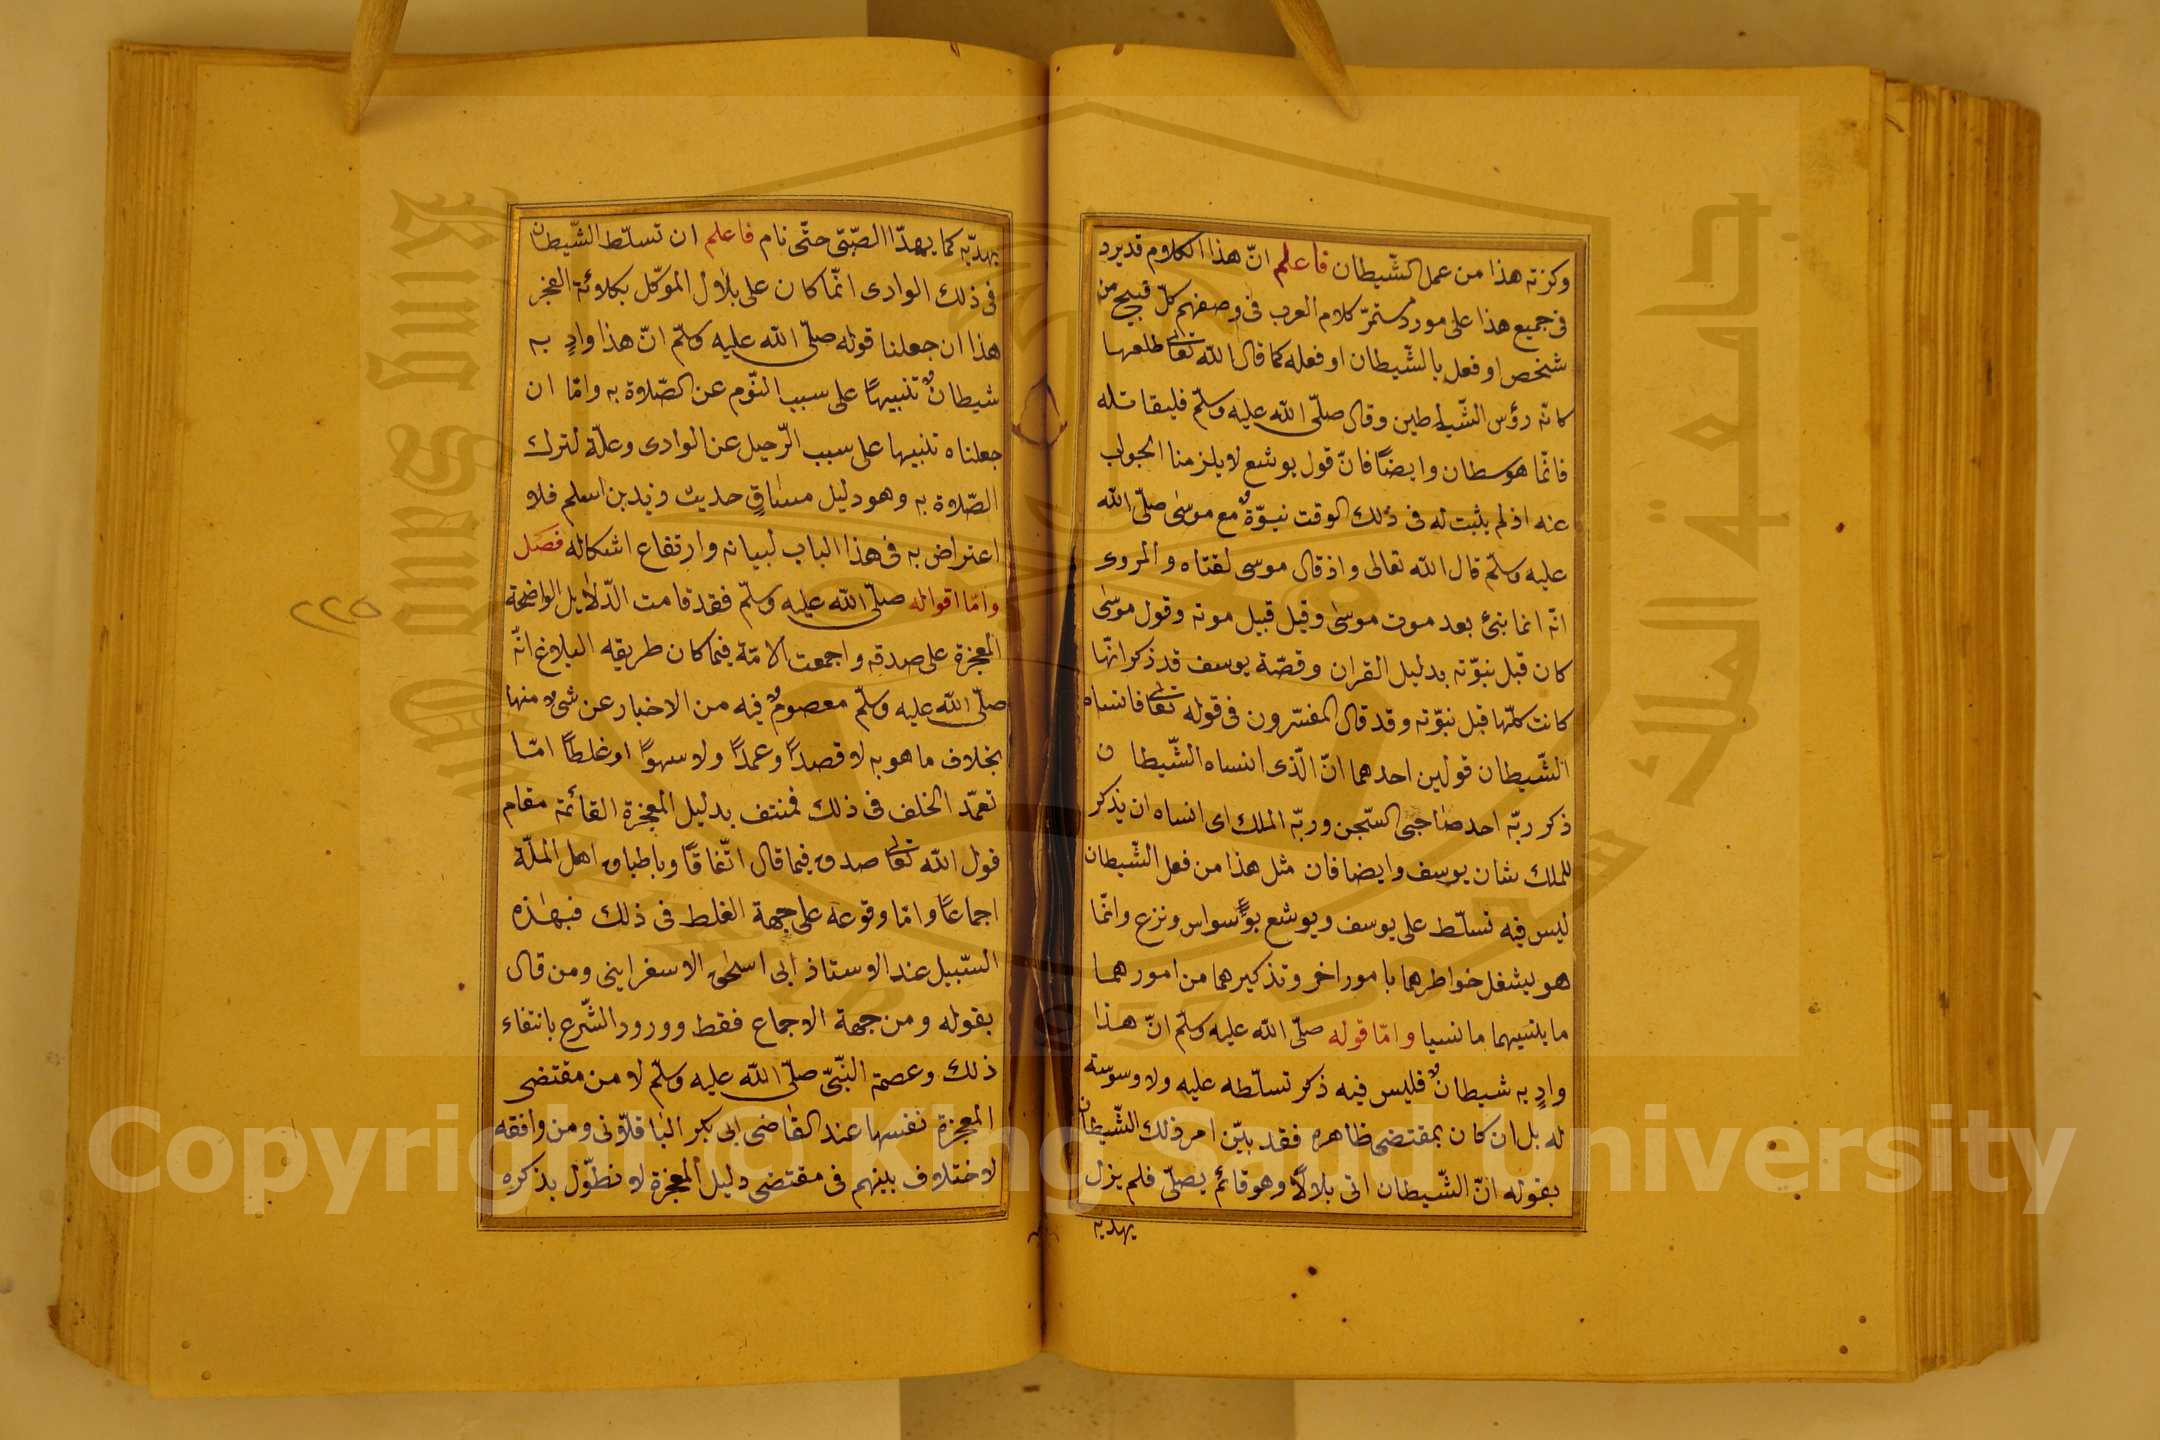 وكزته هذا من عمل الشّيطان فاعلم انّ هذا الكلام قد يرد
فى جميع هذا على مورد مستمرّ كلام العرب فى وصفهم كلّ قبيح من
شخص او فعل بالشّيطان او فعله كما قال الله تعالى طلعها
كانّه رؤس الشّياطين وقال صلّى الله عليه وسلّم فليقاتله
فانّما هو سطان وايضًا فانّ قول يوشع لا يلزمنا الجواب
عنه اذ لم يثبت له فى ذلك الوقت نبوّةٌ مع موسى صلّى الله
عليه وسلّم قال الله تعالى واذ قال موسى لفتاه والمروى
انّه انما نبئ بعد موت موسى وقيل قبيل موته وقول موسى
كان قبل نبوّته بدليل القران وقصّة يوسف قد ذكر انّها
كانت كلّها قبل نبوّته وقد قال المفسّرون فى قوله تعالى فانساه
الشّيطان قولين احدهما انّ الّذى انساه الشّيطان
ذكر ربّه احد صاحبى السّجن وربّه الملك اى انساه ان يذكر
للملك شان يوسف وايضا فان مثل هذا من فعل الشّيطان
ليس فيه تسلّط على يوسف ويوشع بوسواس ونزع وانّما
هو بشغل خواطرهما بامور اخر وتذكيرهما من امورهما
ما ينسيهما ما نسيا وامّا قوله صلّى الله عليه وسلّم انّ هذا
وادٍ به شيطانٌ فليس فيه ذكر تسلّطه عليه ولا وسوسة
له بل ان كان بمقتضى ظاهره فقد بيّن امر ذلك الشّيطان
بقوله انّ الشّيطان اتى بلالًا وهو قائم يصلّى فلم يزل
يهديه
يهديّه كما يهدّا الصّبىّ حتّى نام فاعلم ان تسلّط الشّيطان
فى ذلك الوادى انّما كان على بلال الموكّل بكلائة الفجر
هذا ان جعلنا قوله صلّى الله عليه وسلّم انّ هذا وادٍ به
شيطانٌ تنبيهًا على سبب النّوم عن الصّلاوة به وامّا ان
جعلناه تنبيها على سبب الرّحيل عن الوادى وعلّة لترك
الصّلاوة به وهو دليل مساق حديث وزيد بن اسلم فلا
اعتراض به فى هذا الباب لبيانه وارتفاع اشكاله فصل
وامّا اقواله صلّى الله عليه وسلّم فقد قامت الدّلايل الواضحة
المعجزة على صدقه واجمعت الامّة فيما كان طريقه البلاغ انّه
صلّى الله عليه وسلّم معصومٌ فيه من الاخبار عن شىء منها
بخلاف ما هو به لا قصدًا وعمدًا ولا سهوًا او غلطًا امّا
تعمّد الخلف فى ذلك فمنتف بدليل المعجزة القائمة مقام
قول الله تعالى صدق فيما قال اتّفاقًا وباطباق اهل الملّة
اجماعًا وامّا وقوعه على جهة الغلط فى ذلك فبهٰذه
السّبيل عند الاوستاذ ابى اسحٰق الاسفراينى ومن قال
بقوله ومن جهة الاجماع فقط وورود الشّرع بانتفاء
ذلك وعصمة النّبىّ صلّى الله عليه وسلّم لا من مقتضى
المعجزة نفسها عند القاضى ابى بكر الباقلّانى ومن وافقه
لاختلاف بينهم فى مقتضى دليل المعجزة لا نطوّل بذكره
٢٢٥
جامعة الملك سعود
King Saud University
1957
Copyright © King Saud University